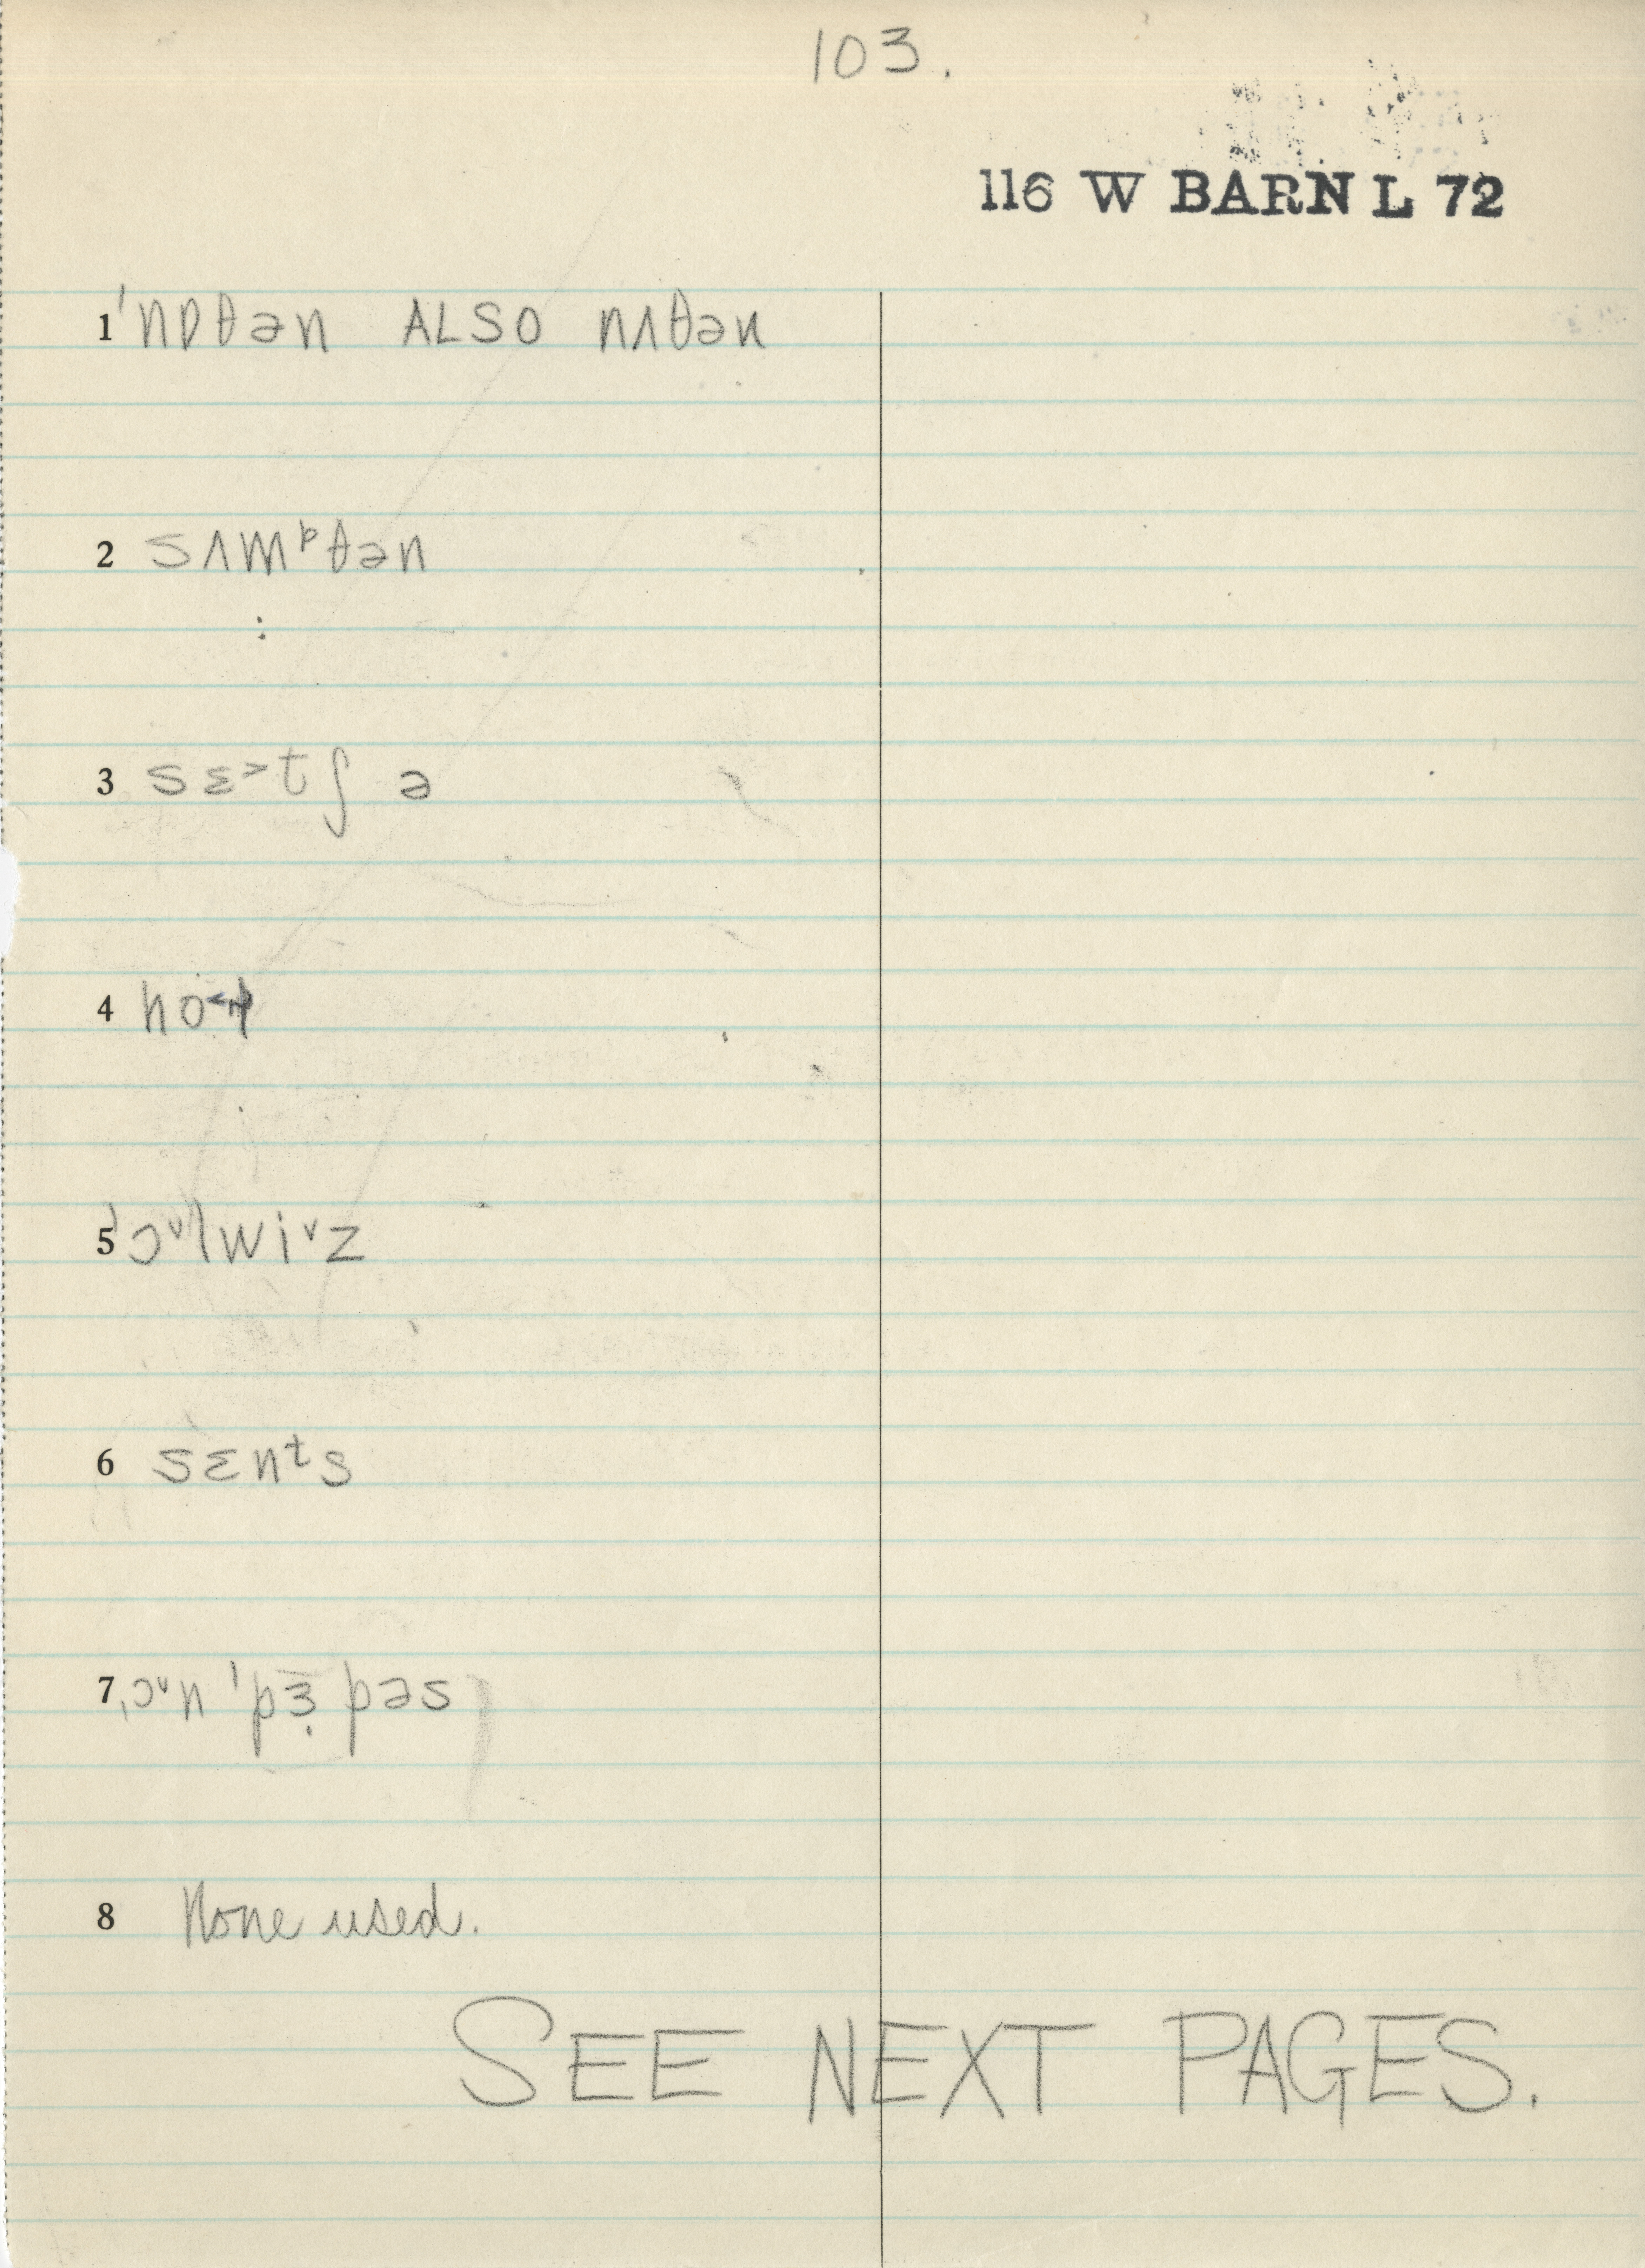 103.
116 W BARN L 72
1 ˈnɒθən ALSO nʌθən
2 sʌmᵖθən
3 sɛ˃tʃ ə
4 ho˂p
5 ˈɔ˅lwi˅z
6 sɛnᵗs
7 ˌɔ˅n ˈpɜ̣ pəs
8 None used.
SEE NEXT PAGES.